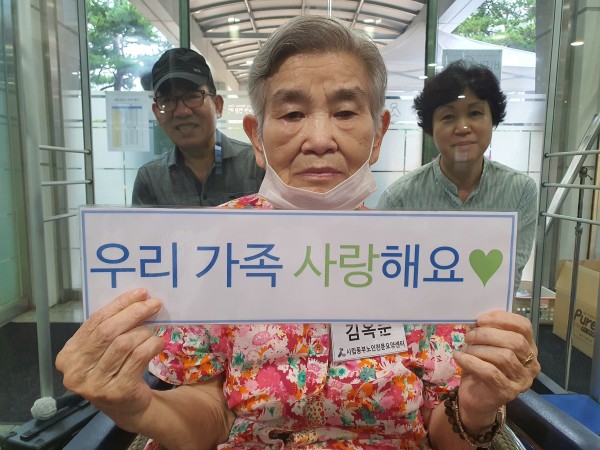 우리 가족 사랑해요♥
김옥순
시립동부노인전문요양센터
Pure